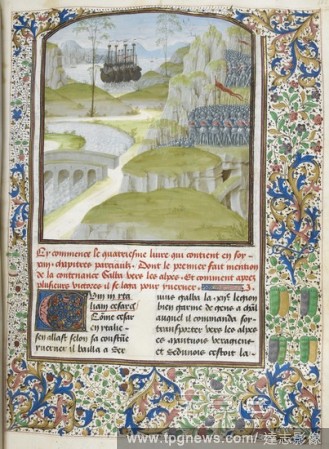 Cy commence le quatriesme liure qui contient en soy
xviij. chapitres parcialz. Dont le premier fait mention
de la contenance Galba vers les alpes. Et comment apres
plusieurs victores il se loga pour yuerner. 3.
lium cesar
Come cesar
en ytalie
sen allast selon sa coustume
yuerner il bailla a Ser
uius galba la xije legion
bien garnie de gens a chaual
auquel il commanda soy
transporter vers les alpes
es nantuois veragiens
et sedunois cestoit la
www.tpgnews.com/ 達志影像